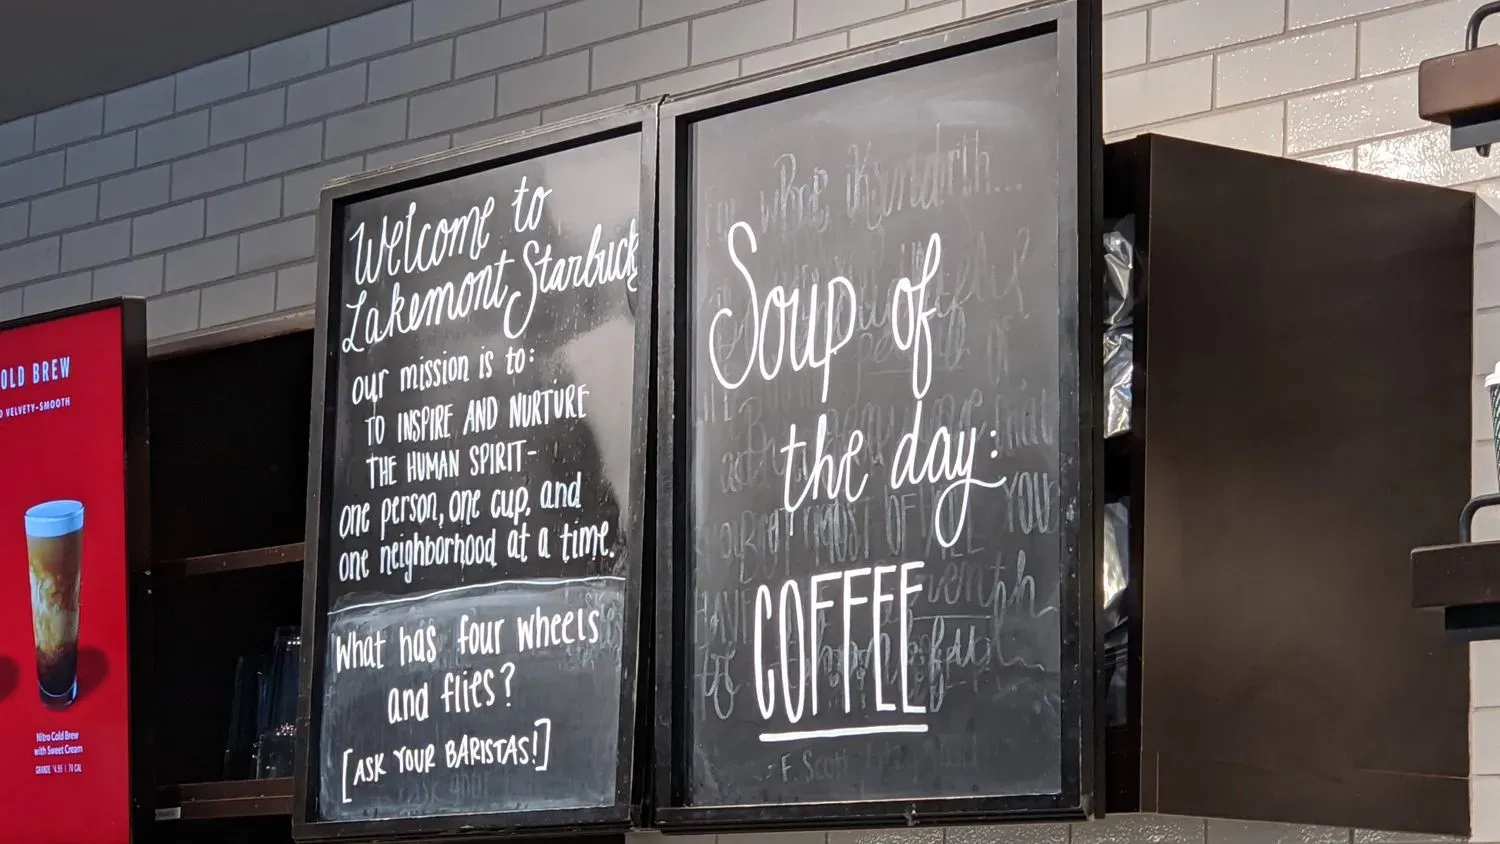 OLD BREW
VELVETY-SMOOTH
Nitro Cold Brew
with Sweet Cream
GRANDE $4.95 | 70 CAL
Welcome to
Lakemont Starbuck
our mission is to:
TO INSPIRE AND NURTURE
THE HUMAN SPIRIT-
one person, one cup, and
one neighborhood at a time.
What has four wheels
and flies?
[ASK YOUR BARISTAS!]
Soup of
the day:
COFFEE
- F. Scott